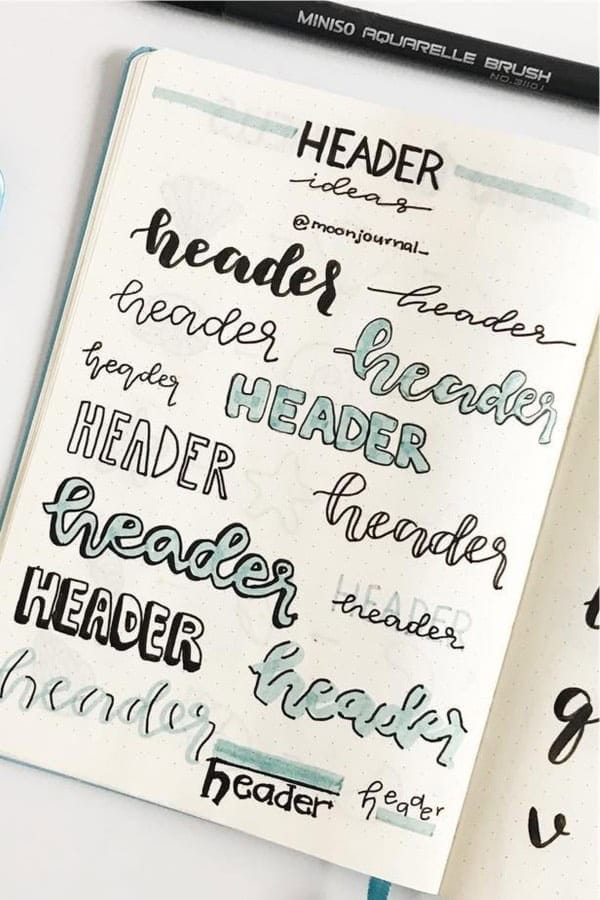 MINISO AQUARELLE BRUSH
HEADER
ideas
@moonjournal_
header
header
header
header
header
HEADER
HEADER
header
header
HEADER
header
HEADER
header
header
header
header
g
v